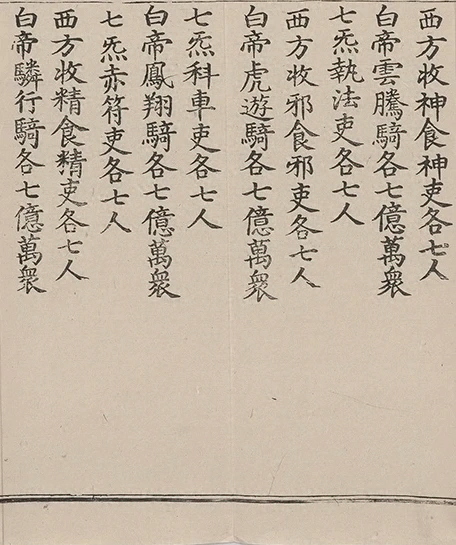 西方收神食神吏各七人
白帝雲騰騎各七億萬衆
七炁執法吏各七人
西方收邪食邪吏各七人
白帝虎遊騎各七億萬衆
七炁科車吏各七人
白帝鳳翔騎各七億萬衆
七炁赤符吏各七人
西方收精食精吏各七人
白帝驎行騎各七億萬衆